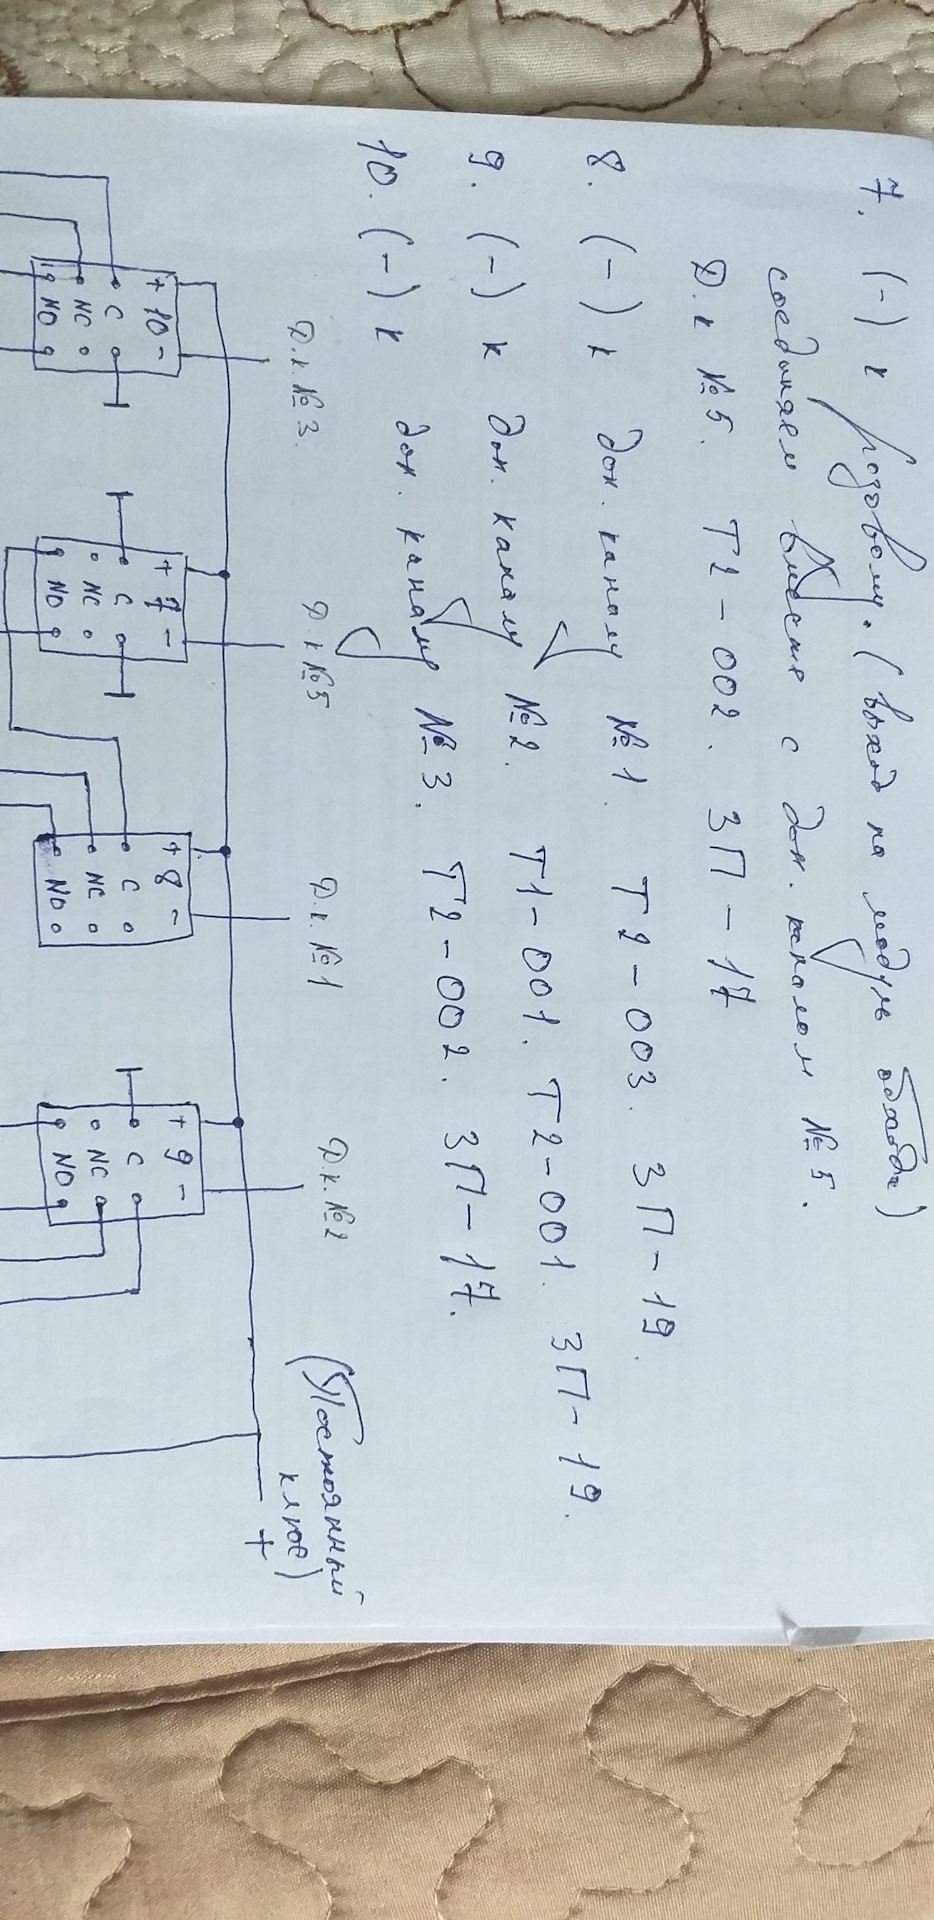 7. (-) к розовому. (выход на модуль обхода)
соединяем вместе с доп. каналом №5.
Д.к №5. Т2-002. ЗП-17
8. (-) к доп. каналу №1. Т2-003. ЗП-19.
9. (-) к доп. каналу №2. Т1-001. Т2-001. ЗП-19.
10. (-) к доп. каналу №3. Т2-002. ЗП-17.
Д.к. №3. Д.к №5 Д.к. №1 Д.к. №2 (Постоянный
плюс)
+
+ 10 - + 7 - + 8 - + 9 -
C C C C
NC NC NC NC
NO NO NO NO